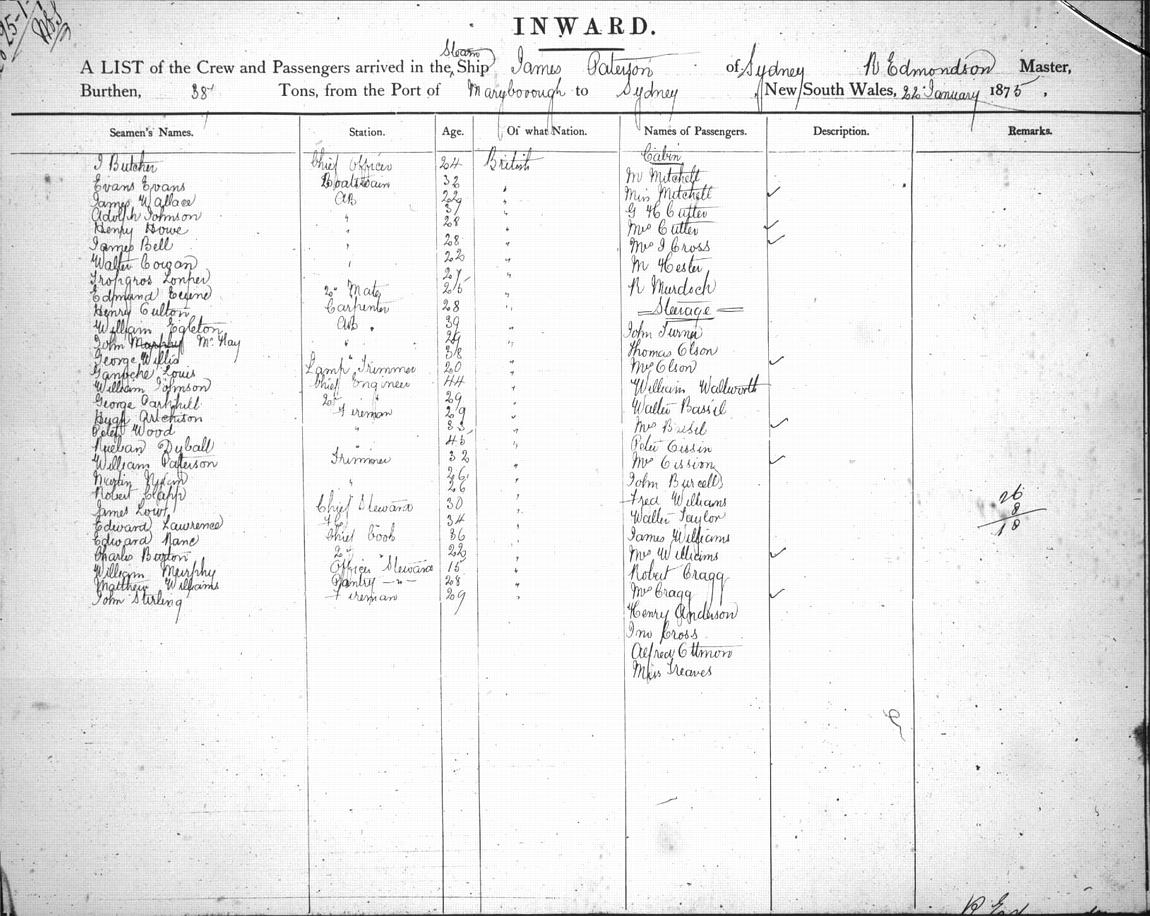 INWARD.
A LIST of the Crew and Passengers arrived in the Steam Ship James Paterson of Sydney R Edmondson Master,
Burthen, 38 Tons, from the Port of Maryborough to Sydney New South Wales, 22 January 1875,
Seamen's Names. Station. Age. Of what Nation. Names of Passengers. Description. Remarks.
J Butcher Chief Officer 24 British
Evans Evans Boatswain 32 "
James Wallace AB 22 "
Adolph Johnson " 37 "
Henry Howe " 28 "
James Bell " 28 "
Walter Cowan " 22 "
27 "
Edmund 2nd Mate 25 "
Henry Culton Carpenter 28 "
William Egleton AB 39 "
John Murphy McKay " 29 "
George Willis " 38 "
Louis Lamp Trimmer 20 "
William Johnson Chief Engineer 44 "
George 2nd " 29 "
Hugh Fireman 29 "
Peter Wood " 33 "
Rueban Dyball " 45 "
William Paterson Trimmer 32 "
Martin 26 "
Robert Clapp " 26 "
James Lowf Chief Steward 30 "
Edward Lawrence 34 "
Edward Nance Chief Cook 36 "
Charles Buxton 2nd " 22 "
William Murphy Officers Steward 15 "
Matthew Williams Pantry —"— 28 "
John Stirling Fireman 29 "
Cabin
M Mitchell
Miss Mitchell ✓
G H Cutter
Mrs Cutter ✓
Mrs J Cross ✓
M Hester
R Murdoch
Steerage
John Turner
Thomas Olson
Mrs Olson ✓
William Wallworth
Walter Bassil
Mrs Basil ✓
Peter Cissin
Mrs Cission ✓
John Burcell
Fred Williams
Walter Taylor
James Williams
Mrs Williams ✓
Robert Cragg
Mrs Cragg ✓
Henry Anderson
Jno Cross
Alfred Ottmon
Miss Treaves
26
8
18